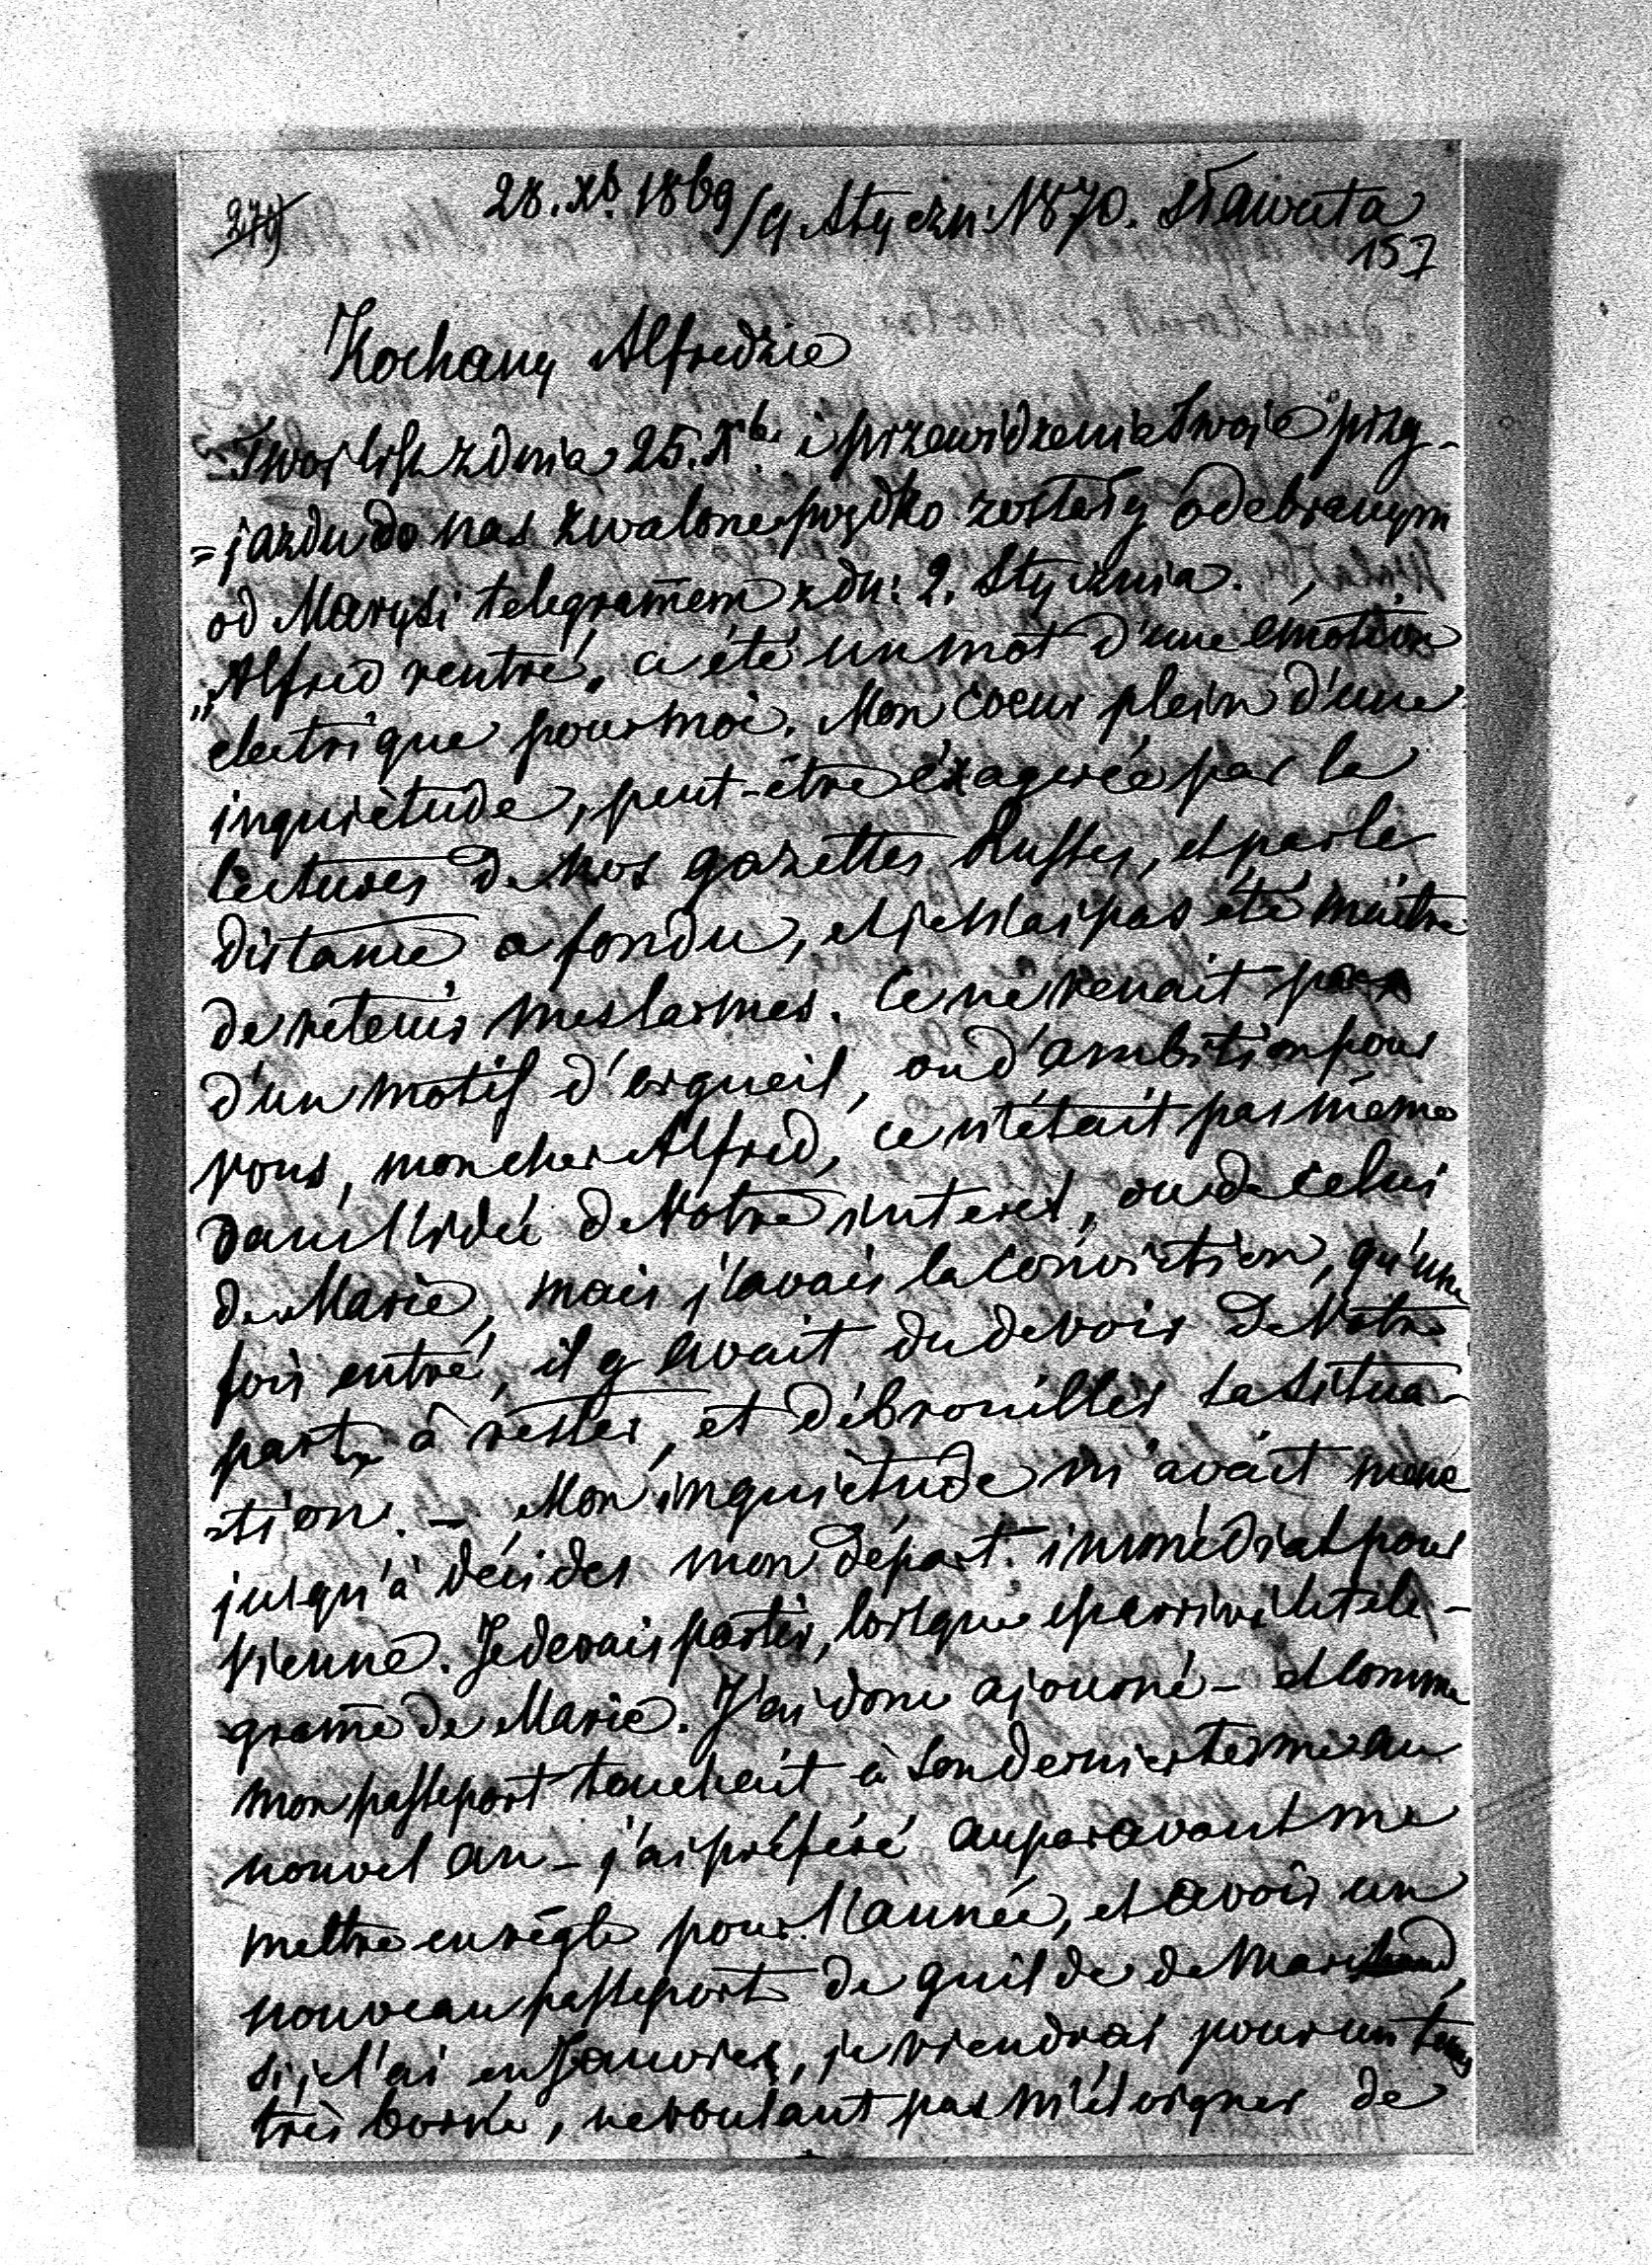 279
28. Xb. 1869/9 Styczn: 1870. Sławuta
157
Kochany Alfredzie
Twoj list z dnia 25. Xb. i przewidzenia twoie przy-
=jazdu do nas zwalone prędko zostały odebranym
od Marysi telegramem z dn: 2. Stycznia.
„Alfred rentré„ a été un mot d'une emotion
electrique pour moi. Mon coeur plein d'une
inquiètude, peut-être éxagerée par la
lectures de nos gazettes Russes, et par la
distance a fondu, et je n'ai pas été maitre
de retenir mes larmes. Ce ne venait pas
d'un motif d'orgueil, ou d'ambition pour
vous, mon cher Alfred, ce n'était pas même
dans l'idée de Votre interet, ou de celui
de Marie, mais j'avais la conviction, qu'une
fois entré, il y avait du devoir de Votre
part à rester, et débrouiller la situa-
-tion. – Mon inquiétude m'avait mené
jusqu'à décider mon départ immédiat pour
Vienne. Je devais partir, lorsque est arrivé le tele-
grame de Marie. J'ai donc ajourné – et comme
mon passeport touchait à son dernier terme au
nouvel an – j'ai préféré auparavant me
mettre en règle pour l'année, et avoir un
nouveau passeport de guilde de marchand,
si je l'ai en Janvier, je viendrai pour un tems
très borné, ne voulant pas m'éloigner de